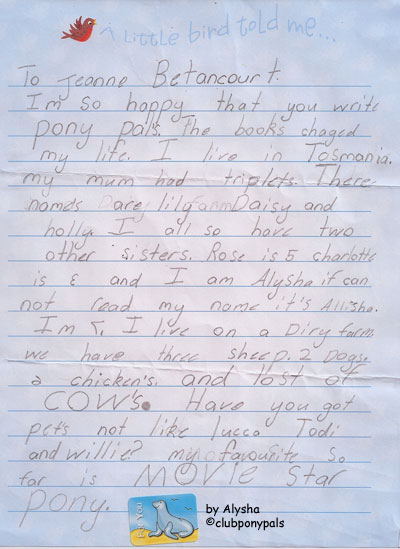 A little bird told me...
To Jeanne Betancourt.
I'm so happy that you write
pony pals. The books chaged
my life. I live in Tasmania.
my mum had triplets. There
nameds Darcy lily Daisy and
holly. I all so have two
other sisters. Rose is 5 charlotte
is and I am Alysha if can
not read my name it's Allisha.
I'm 7. I live on a Diry farm
we have three sheep. 2 Dogs.
2 chicken's. and lost of
COW's. Have you got
pet's not like lucco Todi
and willie? my favourite so
far is MOVIE Star
Pony.
For You
by Alysha
©clubponypals